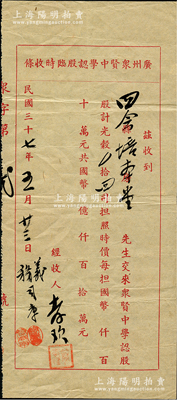 上海陽明拍賣
廣州眾賢中學認股臨時收條
茲收到
四會培本堂
先生交來眾賢中學認股
股計光穀 拾 担照時價每担國幣 仟 百
十 萬元共國幣 億 仟 百 拾 萬元
經收人
民國三十七年五月廿三日
字第 號
上海陽明拍賣